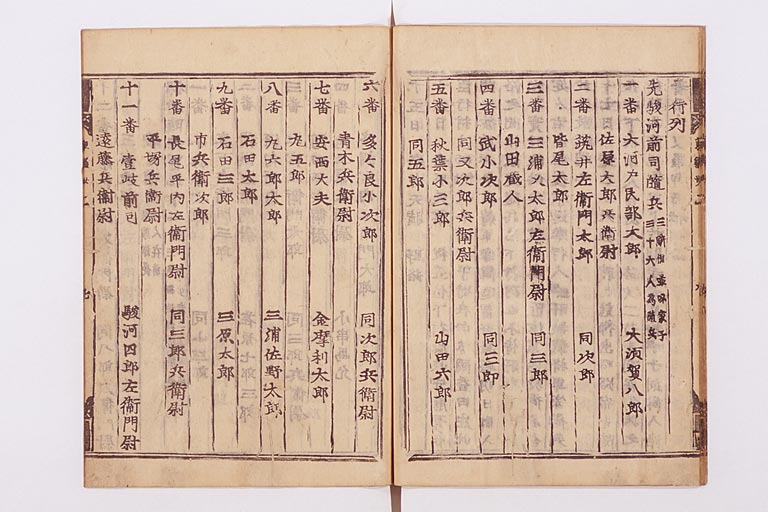 行列
先駿河前司隨兵 三騎相並以家子
三十六人為隨兵
一番 大河戸民部太郎 大須賀八郎
佐原太郎兵衛尉
二番 筑井左衛門太郎 同次郎
皆尾太郎
三番 三浦又太郎左衛門尉 同三郎
山田蔵人
四番 武小次郎 同三郎
同又次郎兵衛尉
五番 秋葉小三郎 山田六郎
同五郎
六番 多々良小次郎 同次郎兵衛尉
青木兵衛尉
七番 安西大夫 金摩利太郎
丸五郎
八番 丸六郎太郎 三浦佐野太郎
石田太郎
九番 石田三郎 三原太郎
市兵衛次郎
十番 長尾平内左衛門尉 同三郎兵衛尉
平塚兵衛尉
十一番 壹岐前司 駿河四郎左衛門尉
遠藤兵衛尉